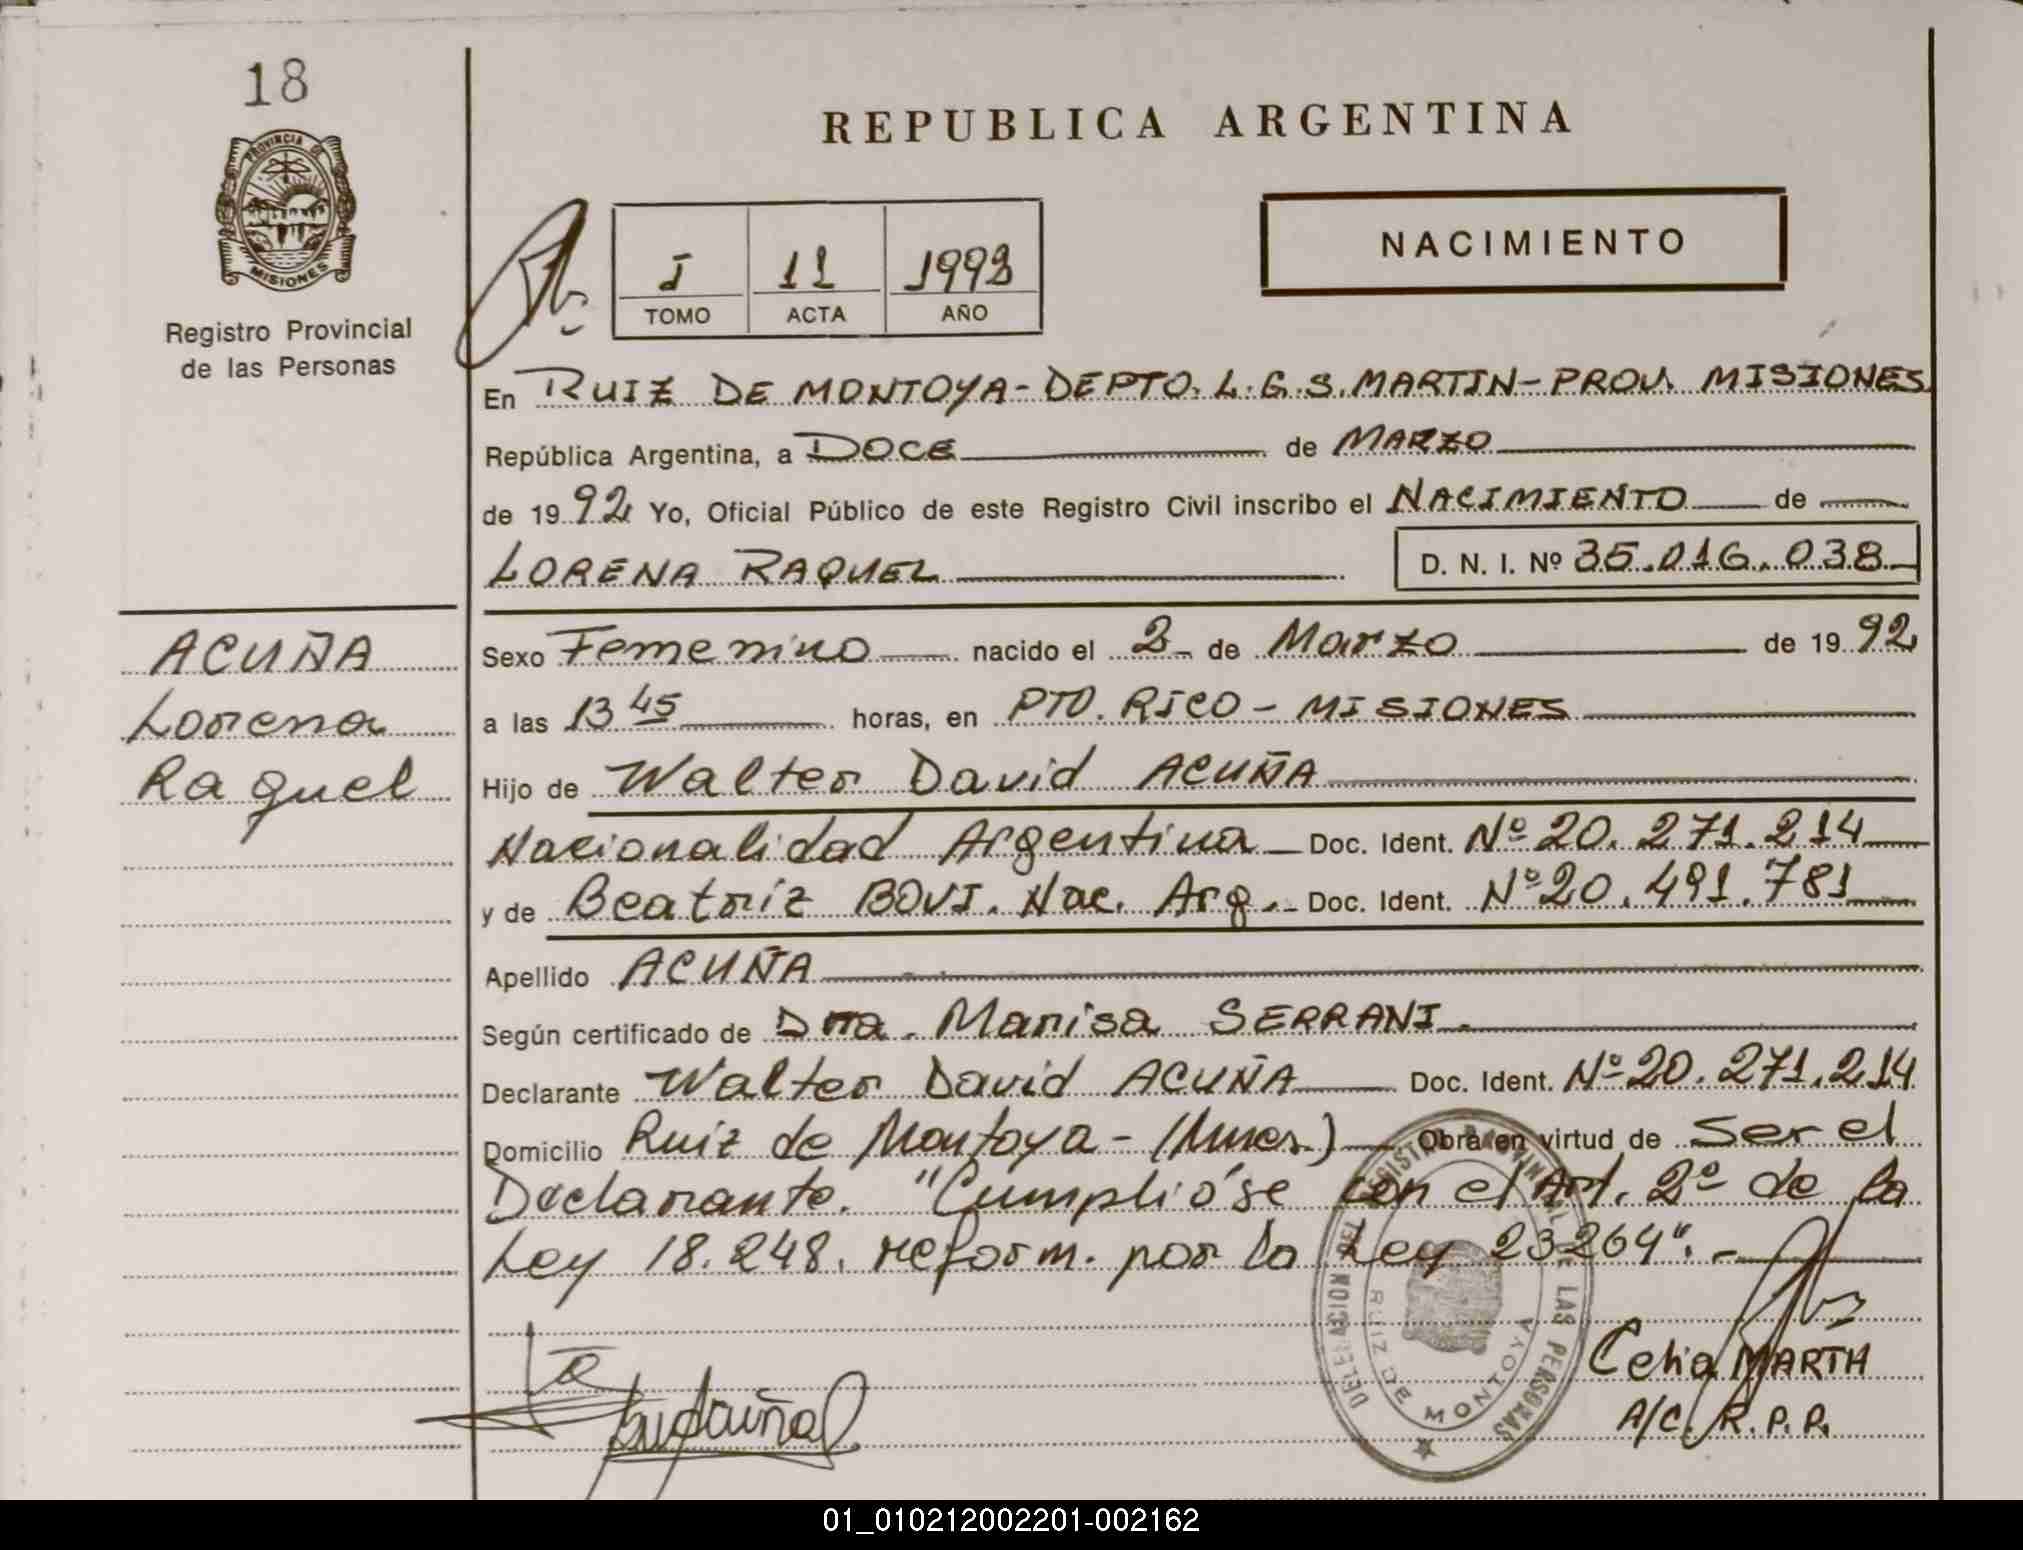 18
REPUBLICA ARGENTINA
PROVINCIA DE
MISIONES
Registro Provincial
de las Personas
I 11 1992
TOMO ACTA AÑO
NACIMIENTO
En RUIZ DE MONTOYA-DEPTO. L.G.S. MARTIN-PROV. MISIONES
República Argentina, a DOCE de MARZO
de 1992 Yo, Oficial Público de este Registro Civil inscribo el NACIMIENTO de
LORENA RAQUEL D. N. I. Nº 35.016.038
ACUÑA
Lorena
Raquel
Sexo Femenino nacido el 2 de Marzo de 1992
a las 13 45 horas, en PTO. RICO - MISIONES
Hijo de Walter David ACUÑA
Nacionalidad Argentina Doc. Ident. Nº 20.271.214
y de Beatriz BOVI. Nac. Arg. Doc. Ident. Nº 20.491.781
Apellido ACUÑA
Según certificado de Dra. Marisa SERRANI.
Declarante Walter David ACUÑA Doc. Ident. Nº 20.271.214
Domicilio Ruiz de Montoya - (Mnes.) Obra en virtud de Ser el
Declarante. "Cumplió'se con el Art. 2º de la
Ley 18.248. reform. por la Ley 23264".-
DELEGACION DEL REGISTRO PROVINCIAL DE LAS PERSONAS
RUIZ DE MONTOYA
Celia MARTH
A/C. R.P.P.
01_010212002201-002162